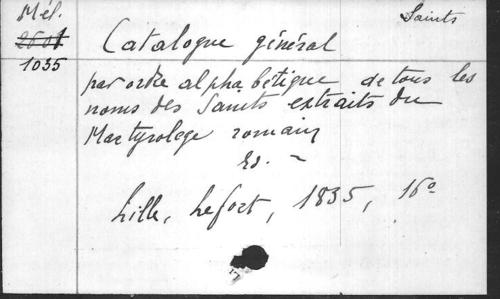 Mél. Saints
2601
1035
Catalogue général
par ordre alphabétique de tous les
noms des Saints extraits du
Martyrologe romain
Ed. -
Lille, Lefort, 1835, 16º